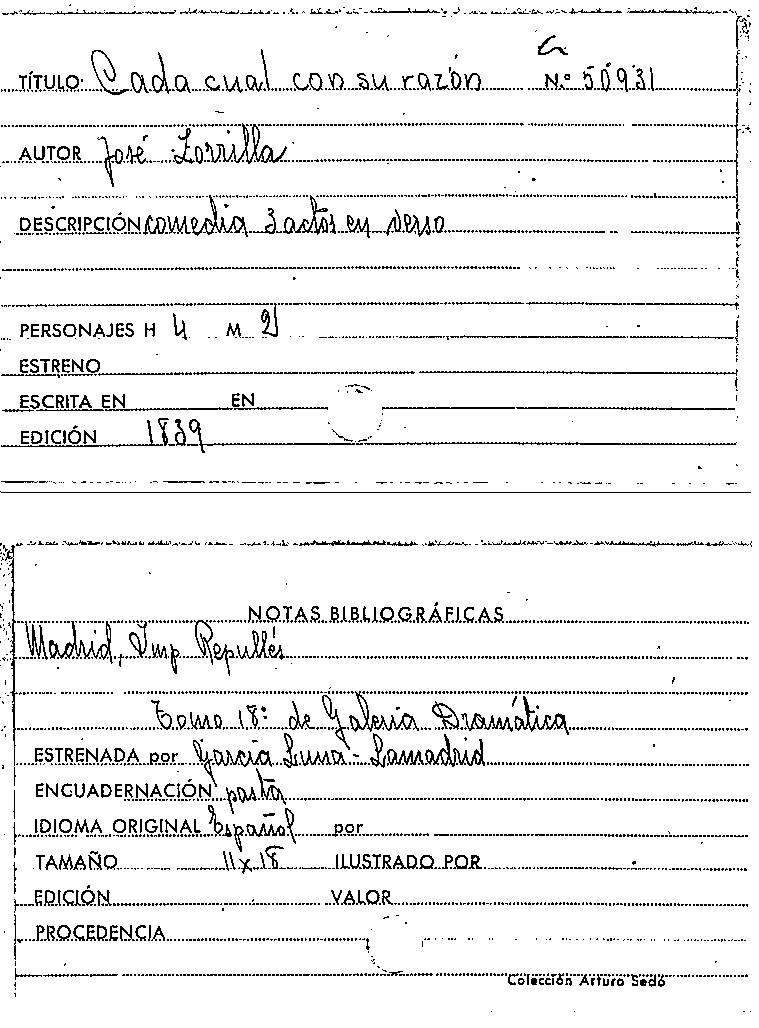 G
TÍTULO: Cada cual con su razón N.º 50931
AUTOR José Zorrilla
DESCRIPCIÓN comedia 3 actos en verso
PERSONAJES H 4 M 2
ESTRENO
ESCRITA EN EN
EDICIÓN 1839
NOTAS BIBLIOGRÁFICAS
Madrid, Imp Repullés
Tomo 18º de Galeria Dramática
ESTRENADA por García Luna - Lamadrid
ENCUADERNACIÓN pasta
IDIOMA ORIGINAL Español por
TAMAÑO 11 x 18 ILUSTRADO POR
EDICIÓN VALOR
PROCEDENCIA
Colección Arturo Sedó